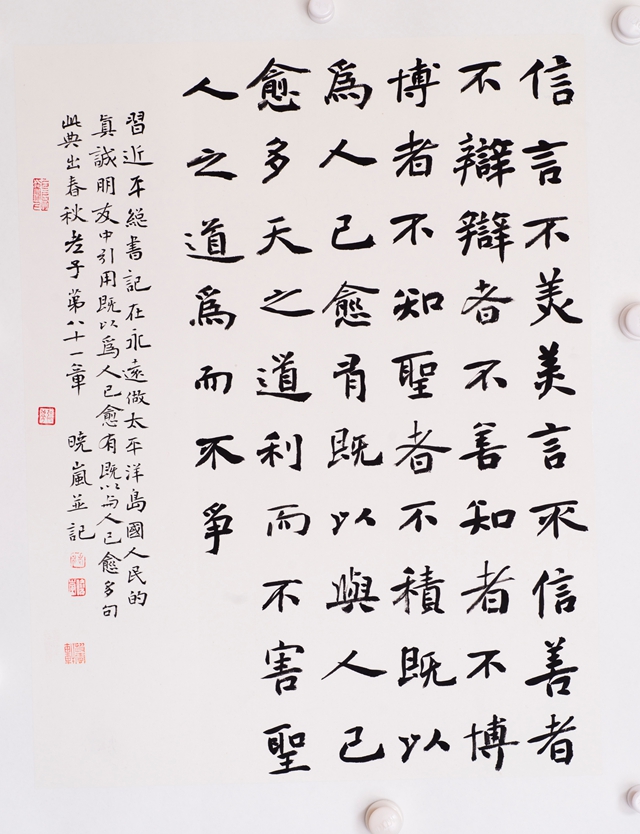 信言不美美言不信善者
不辯辯者不善知者不博
博者不知聖者不積既以
爲人己愈有既以與人己
愈多天之道利而不害聖
人之道爲而不爭
習近平総書記在永遠做太平洋島國人民的
真誠朋友中引用既以爲人己愈有既以与人己愈多句
此典出春秋老子第八十一章 晓嵐並記